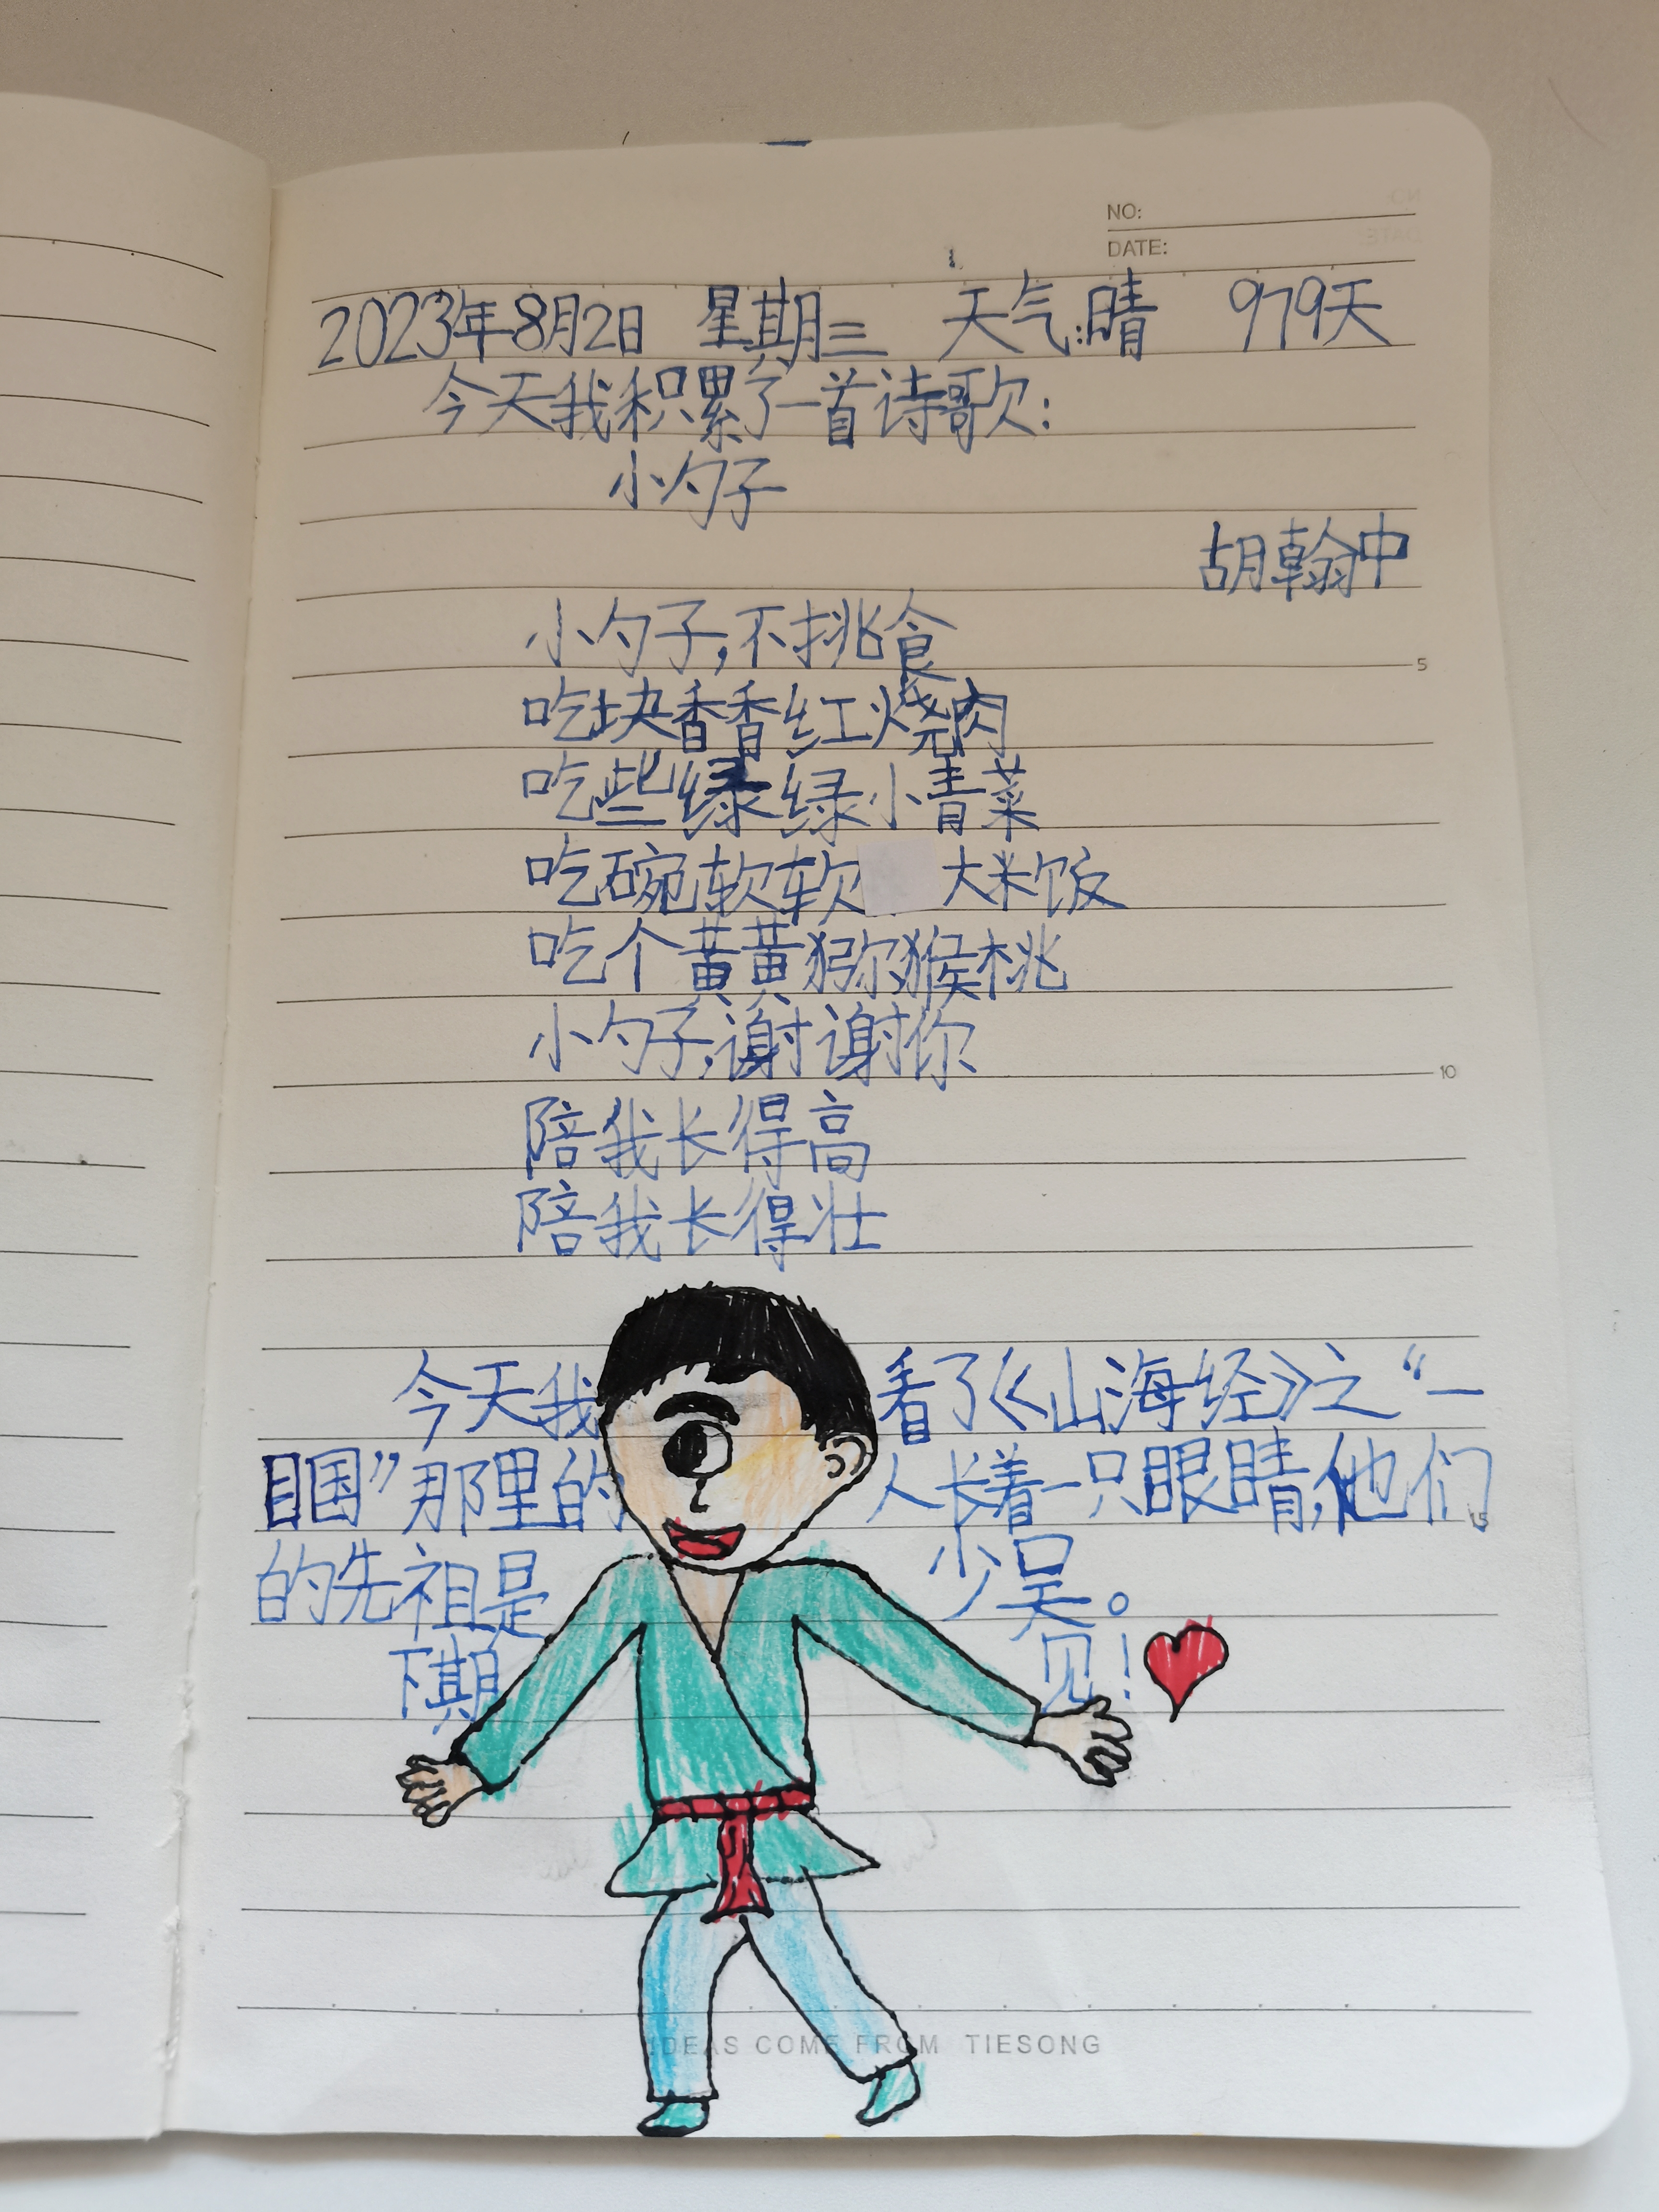 NO:
DATE:
2023年8月2日 星期三 天气:晴 979天
今天我积累了一首诗歌:
小勺子
胡翰中
小勺子,不挑食
5
吃块香香红烧肉
吃些绿绿小青菜
吃碗软软大米饭
吃个黄黄猕猴桃
小勺子,谢谢你
10
陪我长得高
陪我长得壮
今天我看了《山海经》之“一
目国”那里的人长着一只眼睛,他们
15
的先祖是少吴。
下期见!
IDEAS COME FROM TIESONG